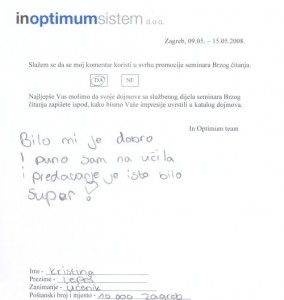 inoptimumsistem d.o.o.
Zagreb, 09.05. – 15.05.2008.
Slažem se da se moj komentar koristi u svrhu promocije seminara Brzog čitanja.
DA NE
Najljepše Vas molimo da svoje dojmove sa službenog dijela seminara Brzog
čitanja zapišete ispod, kako bismo Vaše impresije uvrstili u katalog dojmova.
In Optimum team
Bilo mi je dobro
I puno sam na učila
i predavanje je isto bilo
super!
Ime - Kristina
Prezime -
Zanimanje - Učenik
Poštanski broj i mjesto - 10 000 Zagreb